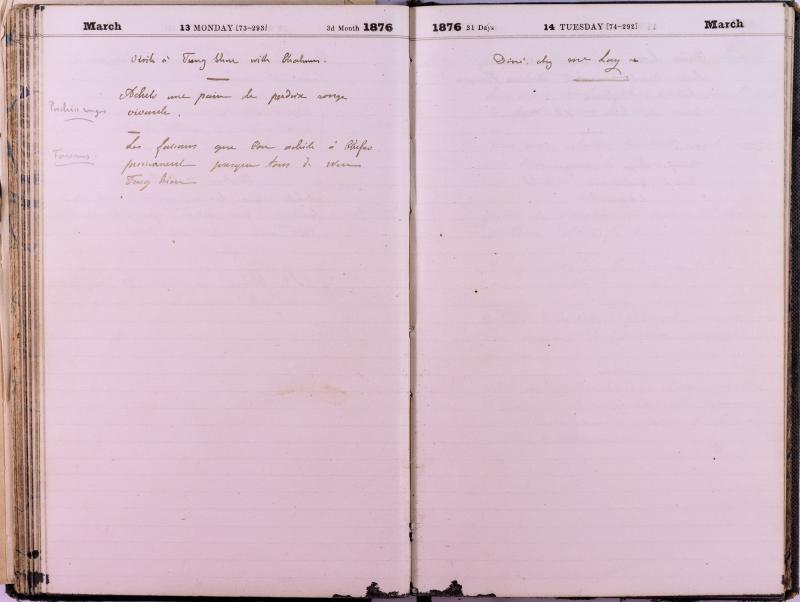 March 13 MONDAY [73-293] 3d Month 1876
visite à Tung with Chalmers.
Perdrix rouges
Acheté une paire de perdrix rouge
vivante.
Faisans.
Les faisans que l'on achète à Chefoo
proviennent presque tous de
Tung
1876 31 Days 14 TUESDAY [74-292] March
Diné chez Mr Lay